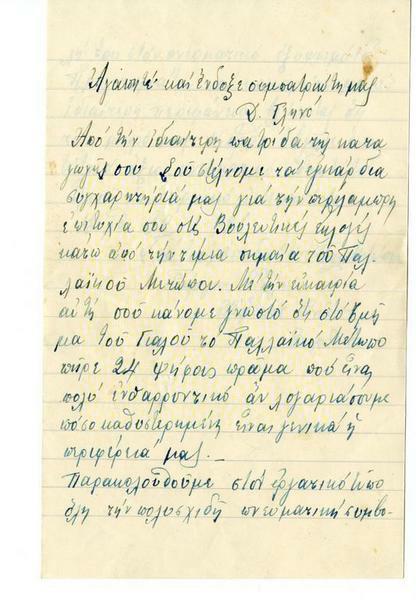 Αγαπητέ και ένδοξε συμπατριώτη μας
Δ. Γληνό
Από την ιδιαίτερη πατρίδα της κατα
γωγής σου σου στέλνομε τα εγκάρδια
συγχαρητήριά μας για την περίλαμπρη
επιτυχία σου στις Βουλευτικές εκλογές
κάτω από την τίμια σημαία του Παλ.
λαϊκού Μετώπου. Με την ευκαιρία
αυτή σου κάνομε γνωστό ότι στο τμή
μα του Γιαλού το Παλλαϊκό Μέτωπο
πήρε 24 ψήφους πράμα που είναι
πολύ ενθαρρυντικό αν λογαριάσουμε
πόσο καθυστερημένη είναι γενικά η
περιφέρεια μας.—
Παρακολουθούμε στον εργατικό τύπο
όλη την πολυσχιδή πνευματική συμβο-